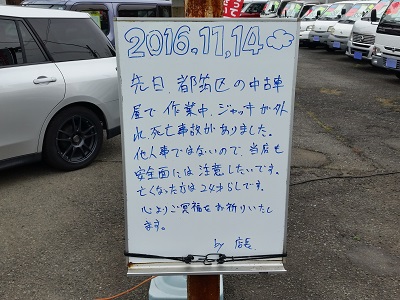 2016.11.14
先日、都筑区の中古車
屋で作業中、ジャッキが外
れ死亡事故がありました。
他人事ではないので、当店も
安全面には注意したいです。
亡くなった方は24才らしです。
心よりご冥福をお祈りいたし
ます。
by 店長